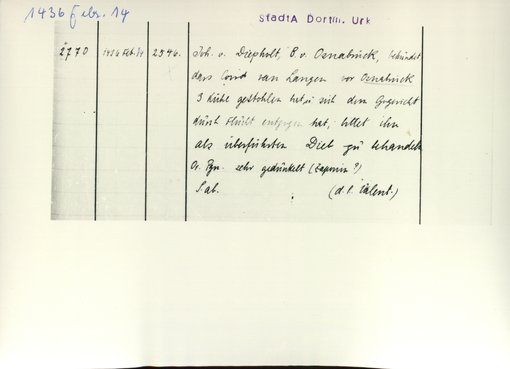 1436 Febr. 14
StadtA Dortm. Urk
2770 1436 Febr. 14 2546. Joh. v. Diepholt, B. v. Osnabrück, bekundet
dass Cord van Langen vor Osnabrück
3 Kühe gestohlen hat, u sich dem Gericht
durch Flucht entzogen hat, bittet ihn
als überführten Dieb zu behandeln
Or. Pgm. sehr gedunkelt (Zaponin?)
Sab. (d. l. Valent.)